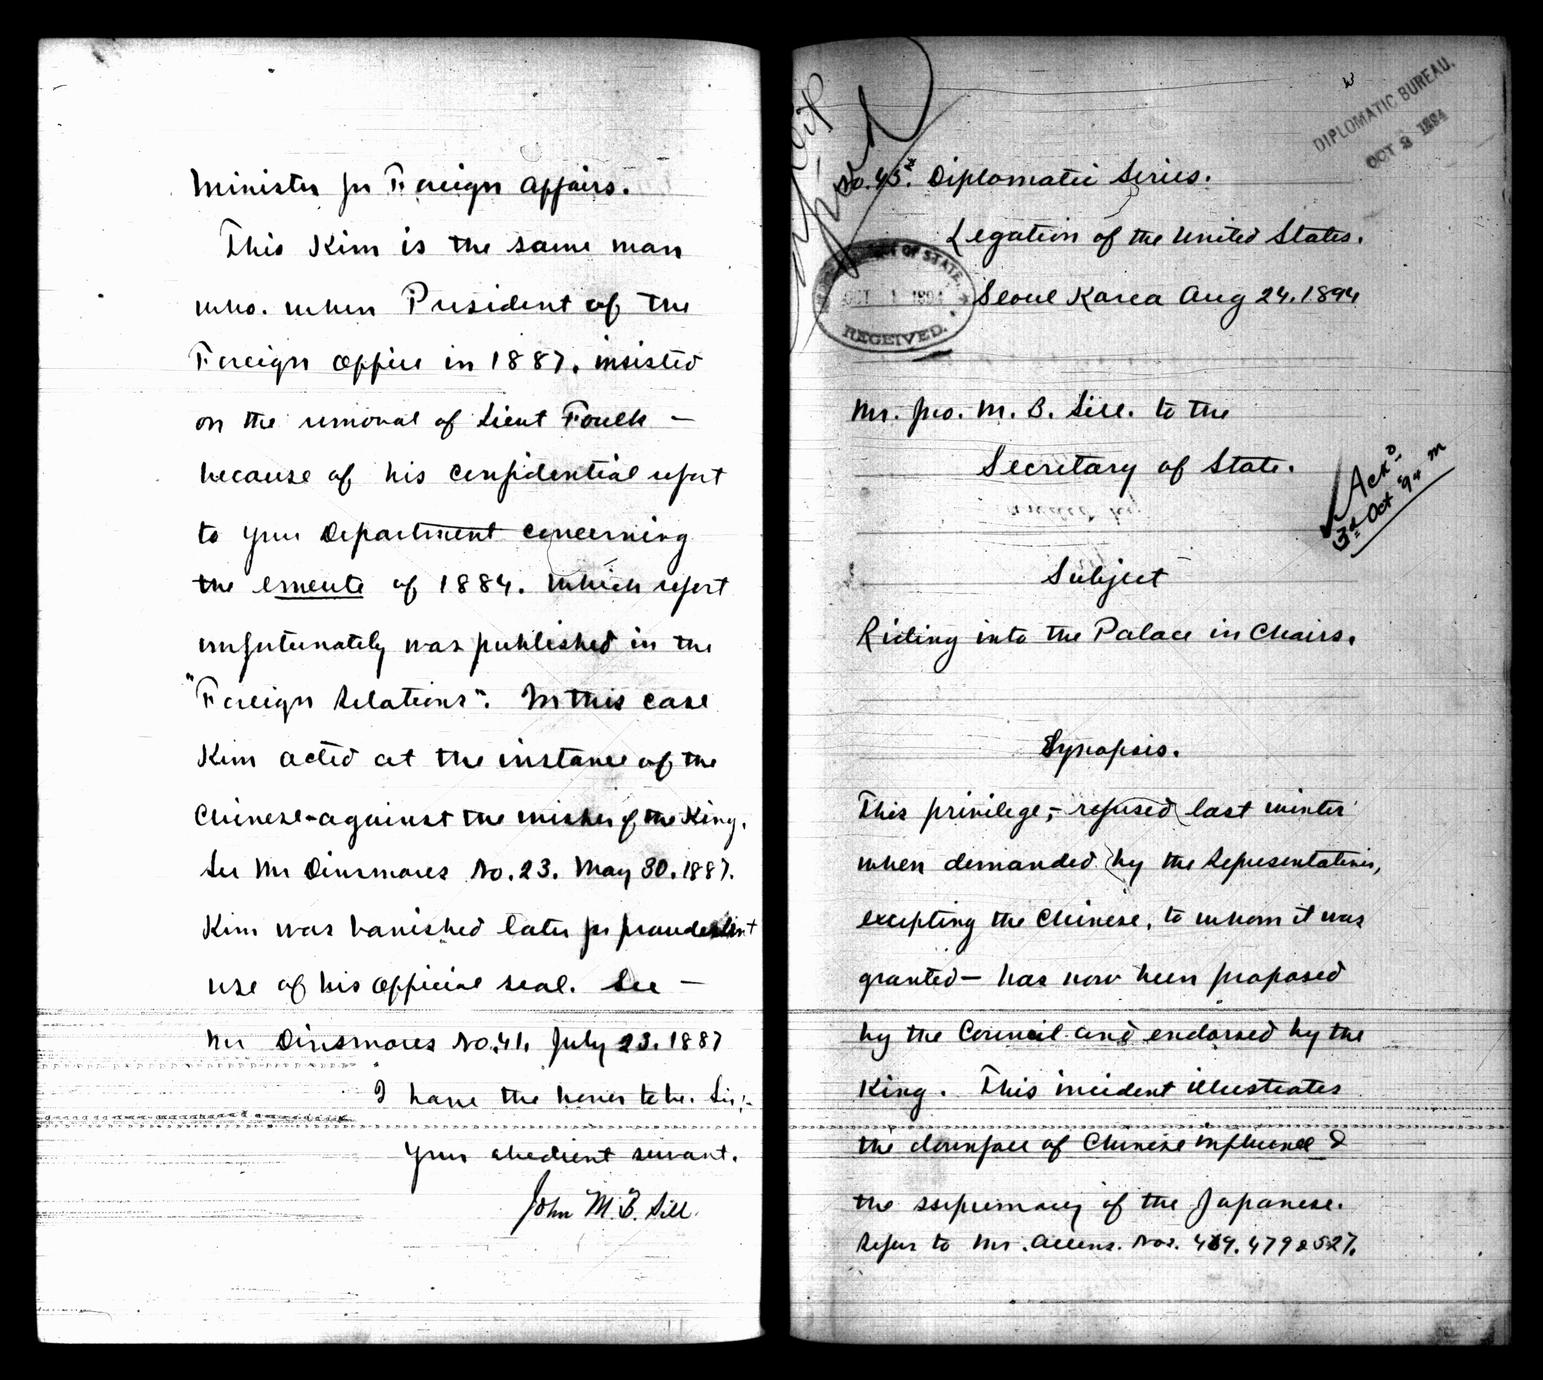 Minister for Foreign Affairs.
This Kim is the same man
who. when President of the
Foreign Office in 1887. insisted
on the removal of Lieut Foulk —
because of his confidential report
to your Department concerning
the emeute of 1884. which report
unfortunately was published in the
"Foreign Relations". In this case
Kim acted at the instance of the
Chinese - against the wishes of the King.
See Mr Dinsmores No. 23. May 30. 1887.
Kim was banished later for fraudulent
use of his official seal. See —
Mr Dinsmores No. 41. July 23. 1887
I have the honor to be. Sir:-
Your obedient servant.
John M. B. Sill.
DIPLOMATIC BUREAU.
OCT 2 1894
No. 45. Diplomatic Series.
Legation of the United States.
OF STATE.
OCT 1 1894
RECEIVED.
Seoul Korea Aug 24. 1894
Mr. Jno. M. B. Sill. to the
Secretary of State.
Ackd
3d Oct '94 m
Subject
Riding into the Palace in Chairs.
Synopsis.
This privilege,- refused last winter
when demanded by the Representatives,
excepting the Chinese, to whom it was
granted — has now been proposed
by the Council and endorsed by the
King. This incident illustrates
the downfall of Chinese influence &
the supremacy of the Japanese.
Refer to Mr. Allens. Nos. 469. 479 & 527.